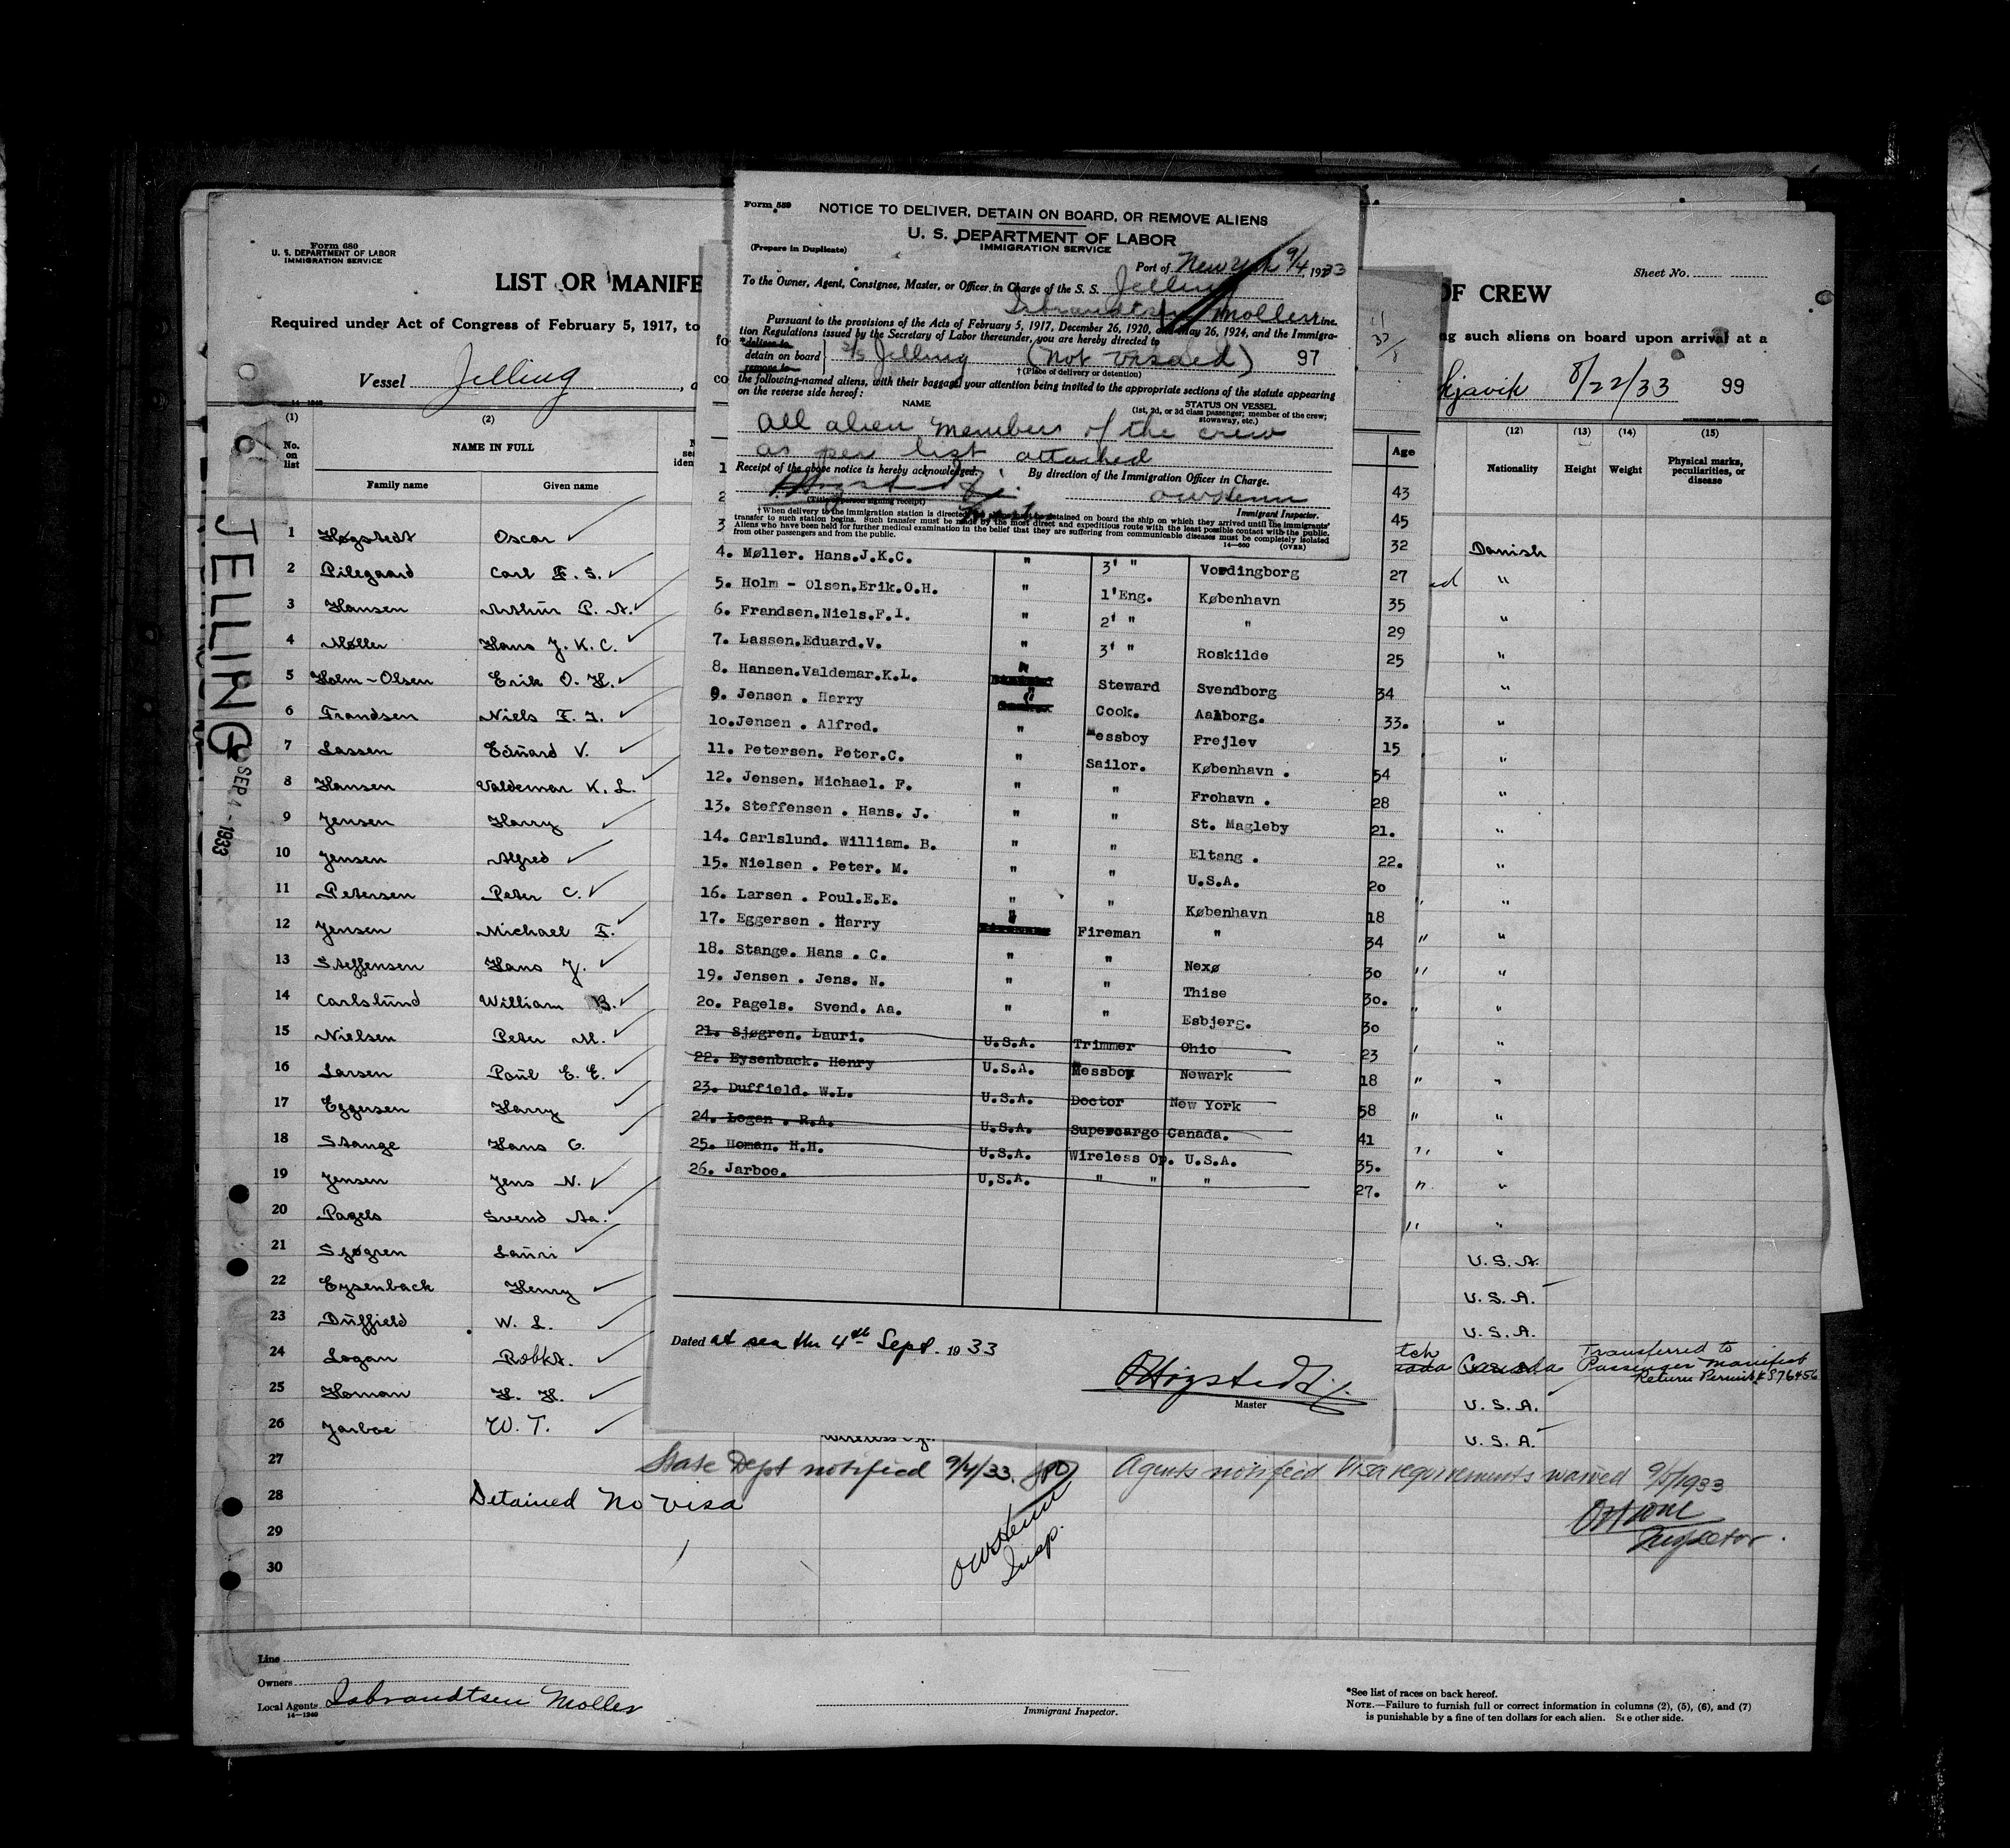 Form 689
NOTICE TO DELIVER, DETAIN ON BOARD, OR REMOVE ALIENS
U. S. DEPARTMENT OF LABOR
IMMIGRATION SERVICE
(Prepare in Duplicate)
Port of New York 9/4, 1933
To the Owner, Agent, Consignee, Master, or Officer in Charge of the S. S. Jelling
Isbrandtsen Moller Inc.
Pursuant to the provisions of the Acts of February 5, 1917, December 26, 1920, and May 26, 1924, and the Immigra-
tion Regulations issued by the Secretary of Labor thereunder, you are hereby directed to
*deliver to
detain on board } S/S Jelling (Not Visaed) 97
remove to
†(Place of delivery or detention)
the following-named aliens, with their baggage, your attention being invited to the appropriate sections of the statute appearing
on the reverse side hereof:
NAME
STATUS ON VESSEL
(1st, 2d, or 3d class passenger; member of the crew;
stowaway, etc.)
All alien members of the crew
as per list attached
Receipt of the above notice is hereby acknowledged.
By direction of the Immigration Officer in Charge.
(Title of person signing receipt)
Immigrant Inspector.
†When delivery to the immigration station is directed, detained on board the ship on which they arrived until the immigrants'
transfer to such station begins. Such transfer must be made by the most direct and expeditious route with the least possible contact with the public.
Aliens who have been held for further medical examination in the belief that they are suffering from communicable diseases must be completely isolated
from other passengers and from the public.
14—680 (OVER)
Form 680
U. S. DEPARTMENT OF LABOR
IMMIGRATION SERVICE
LIST OR MANIFE
OF CREW
Sheet No.
Required under Act of Congress of February 5, 1917, to
ng such aliens on board upon arrival at a
Vessel Jelling
kjavik 8/22/33 99
14—1240
(1) (2) (12) (13) (14) (15)
No. on list
NAME IN FULL
Family name
Given name
Nationality
Height
Weight
Physical marks, peculiarities, or disease
JELLING
SEP 4 - 1933
1 Høgstedt Oscar Danish
2 Pilegaard Carl F. S. "
3 Hansen Arthur P. A. "
4 Møller Hans J. K. C. "
5 Holm-Olsen Erik O. H. "
6 Frandsen Niels F. I. "
7 Lassen Eduard V. "
8 Hansen Valdemar K. L. "
9 Jensen Harry "
10 Jensen Alfred "
11 Petersen Peter C. "
12 Jensen Michael F. "
13 Steffensen Hans J. "
14 Carlslund William B. "
15 Nielsen Peter M. "
16 Larsen Poul E. E. "
17 Eggersen Harry "
18 Stange Hans C. "
19 Jensen Jens N. "
20 Pagels Svend Aa. "
21 Sjøgren Lauri U. S. A.
22 Eysenback Henry U. S. A.
23 Duffield W. L. U. S. A.
24 Logan Robt A. Canada Transferred to
Passenger manifest
Return Permit
25 Homan H. H. U. S. A.
26 Jarboe W. T. U. S. A.
27
28
29
30
Age
43
45
32
4. Møller. Hans.J.K.C. " 3' " Vordingborg 27
5. Holm - Olsen.Erik.O.H. " 1'Eng. København 35
6. Frandsen.Niels.F.I. " 2' " " 29
7. Lassen.Eduard.V. " 3' " Roskilde 25
8. Hansen.Valdemar.K.L. " Steward Svendborg 34
9. Jensen . Harry " Cook. Aalborg. 33.
10.Jensen . Alfred. " Messboy Frejlev 15
11. Petersen. Peter.C. " Sailor. København . 54
12. Jensen. Michael. F. " " Frohavn . 28
13. Steffensen . Hans. J. " " St. Magleby 21.
14. Carlslund. William. B. " " Eltang . 22.
15. Nielsen . Peter. M. " " U.S.A. 20
16. Larsen . Poul.E.E. " " København 18
17. Eggersen . Harry " Fireman " 34
18. Stange. Hans . C. " " Nexø 30
19. Jensen . Jens. N. " " Thise 30.
20. Pagels. Svend. Aa. " " Esbjerg. 30
21. Sjøgren. Lauri. U.S.A. Trimmer Ohio 23
22. Eysenback. Henry U.S.A. Messboy Newark 18
23. Duffield. W.L. U.S.A. Doctor New York 58
24. Logan . R.A. U.S.A. Supercargo Canada. 41
25. Homan. H.H. U.S.A. Wireless Op. U.S.A. 35.
26. Jarboe. U.S.A. " " " 27.
Dated at sea the 4th Sept. 1933
OHøgstedt
Master
State Dept notified 9/4/33. Agents notified Visa requirements waived 9/5/1933
Detained No visa
Insp.
Inspector.
Line
Owners
Local Agents Isbrandtsen Moller
14—1240
Immigrant Inspector.
*See list of races on back hereof.
NOTE.—Failure to furnish full or correct information in columns (2), (5), (6), and (7)
is punishable by a fine of ten dollars for each alien. See other side.